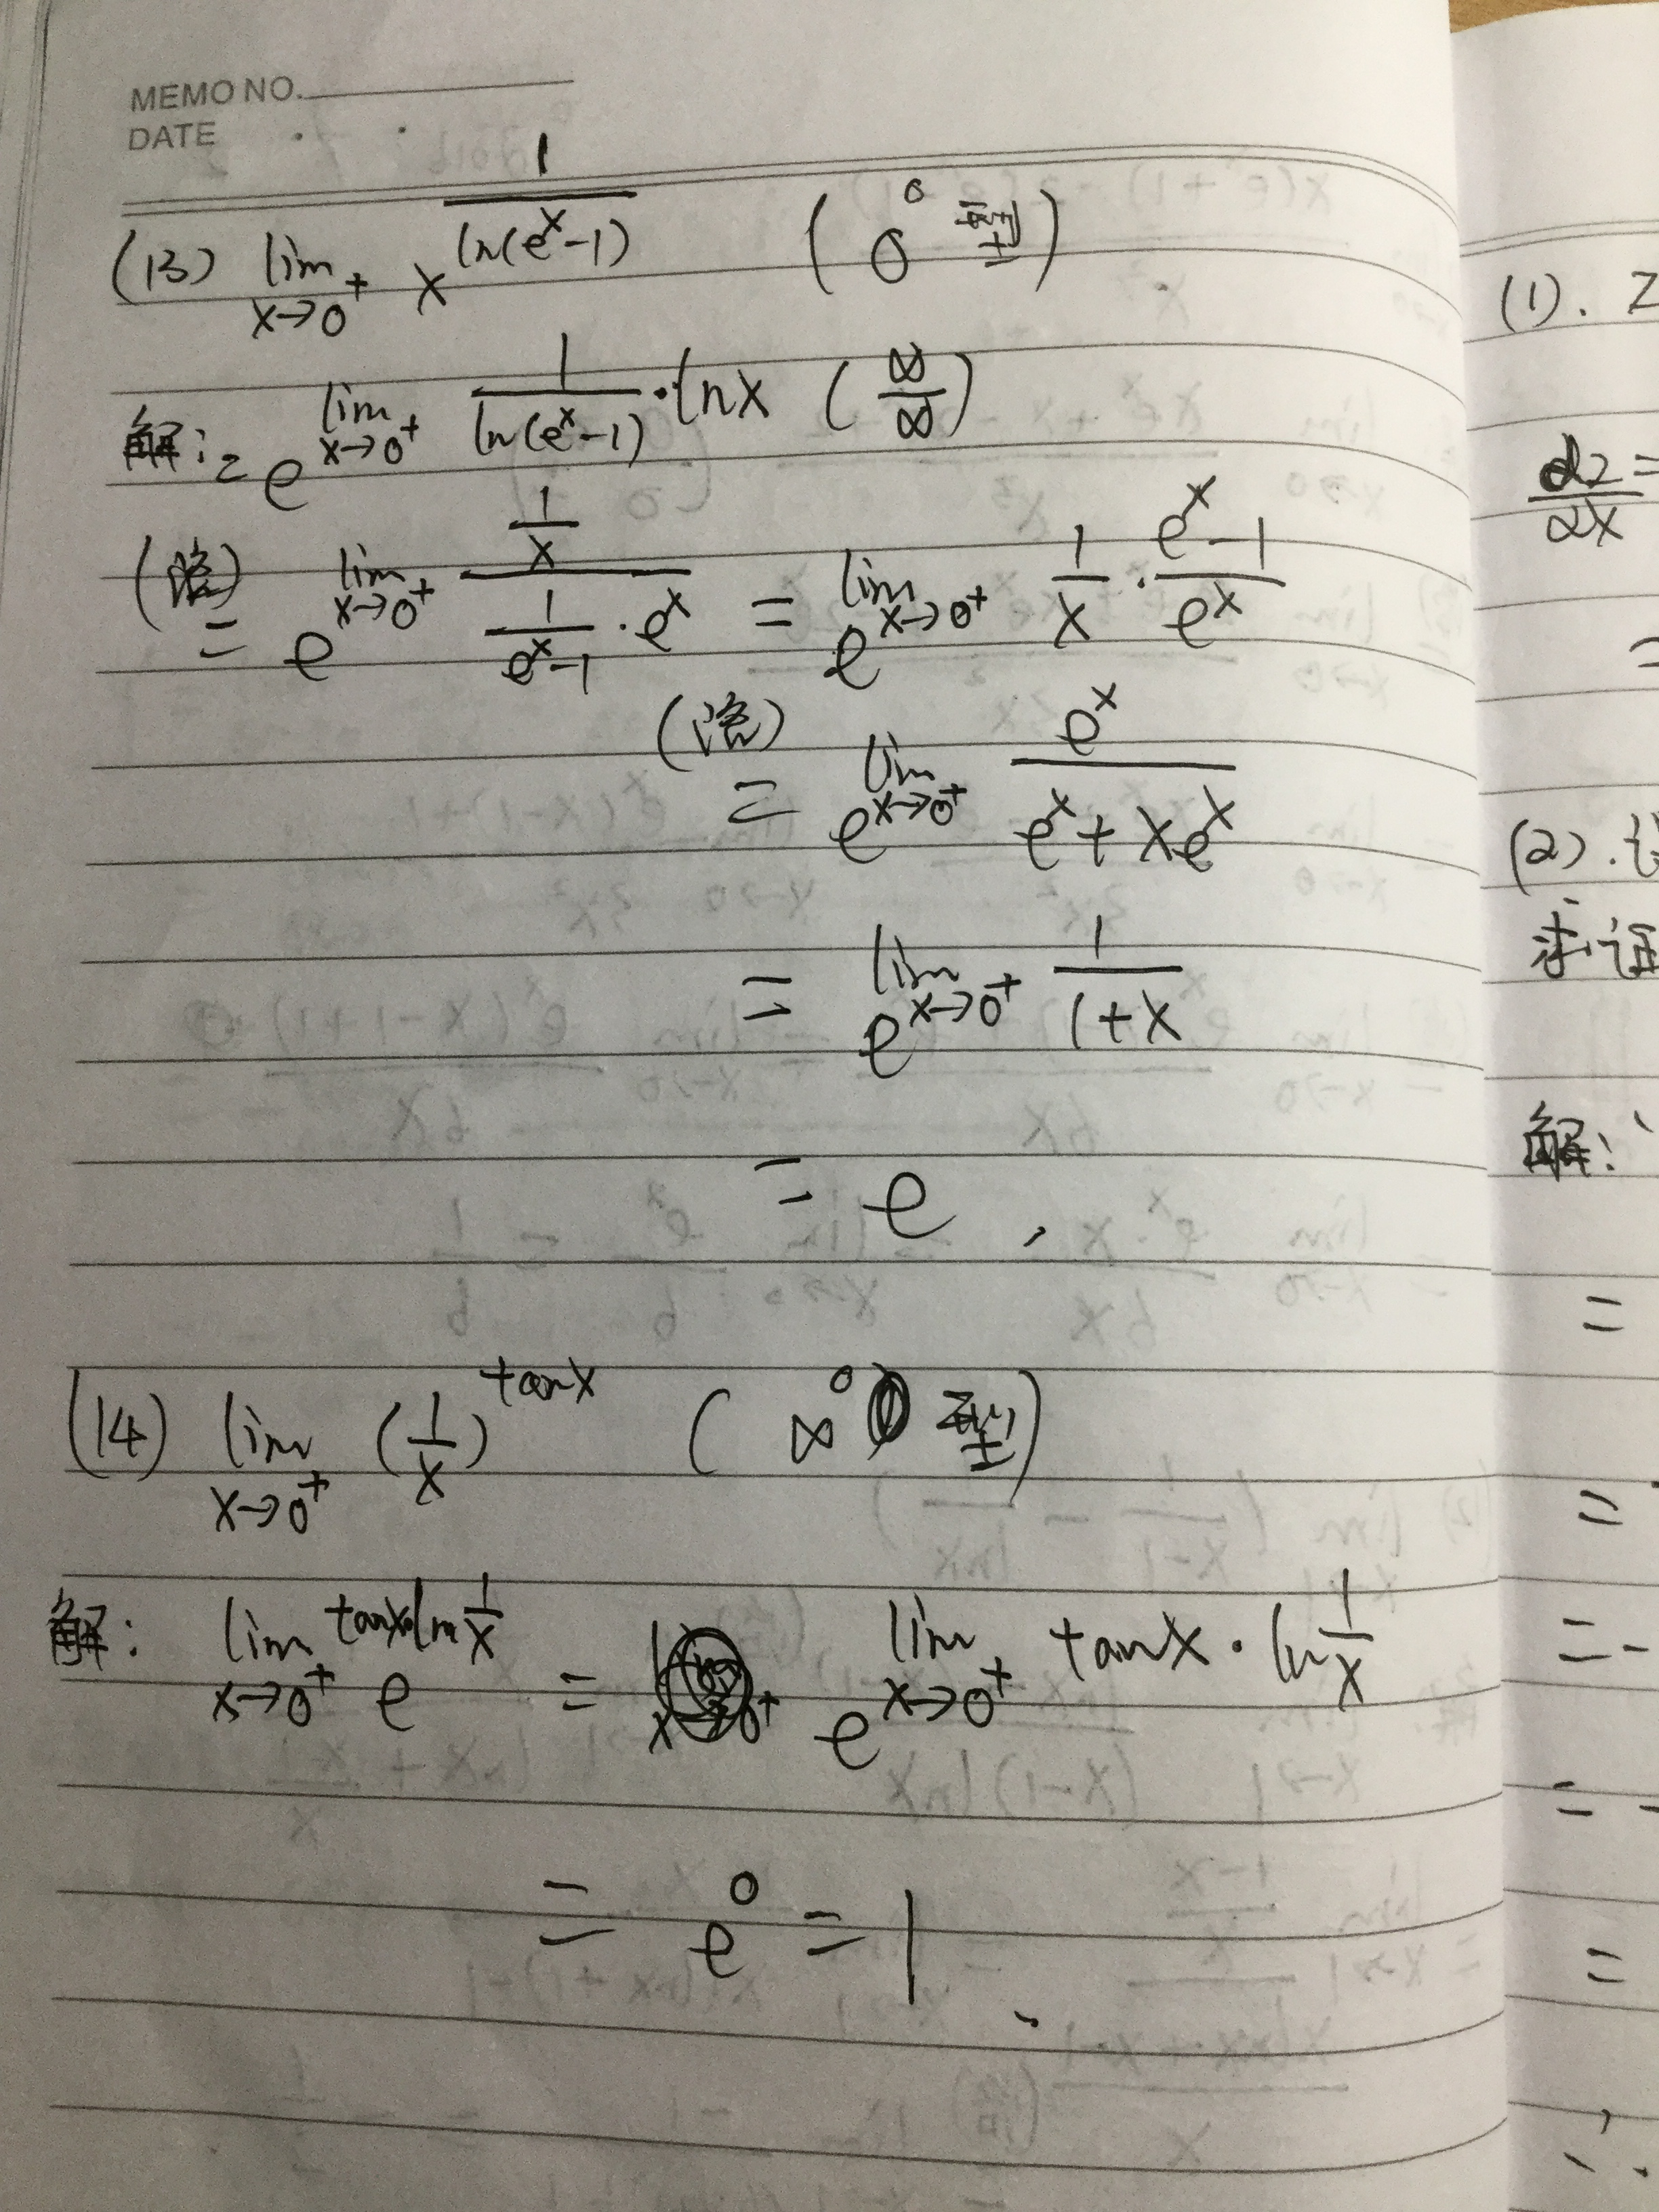 MEMO NO.
DATE
(13) lim x→0⁺ x^(1/ln(eˣ-1)) (0⁰ 型)
解: = e^(lim x→0⁺ 1/ln(eˣ-1) · lnx) (∞/∞)
(洛) = e^(lim x→0⁺ (1/x)/(1/(eˣ-1) · eˣ)) = e^(lim x→0⁺ 1/x · (eˣ-1)/eˣ)
(洛) = e^(lim x→0⁺ eˣ/(eˣ + xeˣ))
= e^(lim x→0⁺ 1/(1+x))
= e,
(14) lim x→0⁺ (1/x)^tanx (∞⁰ 型)
解: lim x→0⁺ e^(tanx·ln 1/x) = e^(lim x→0⁺ tanx · ln 1/x)
= e⁰ = 1.
(1). Z
dz/dx =
=
(2).
求证
解:
=
=
= -
= -
=